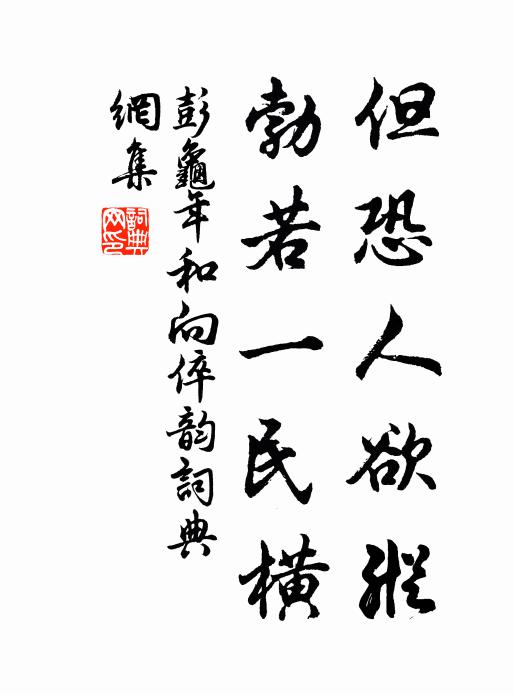 但恐人欲縱
勃若一民橫
彭龜年和向倅韵詞典
網集
詞典
网印